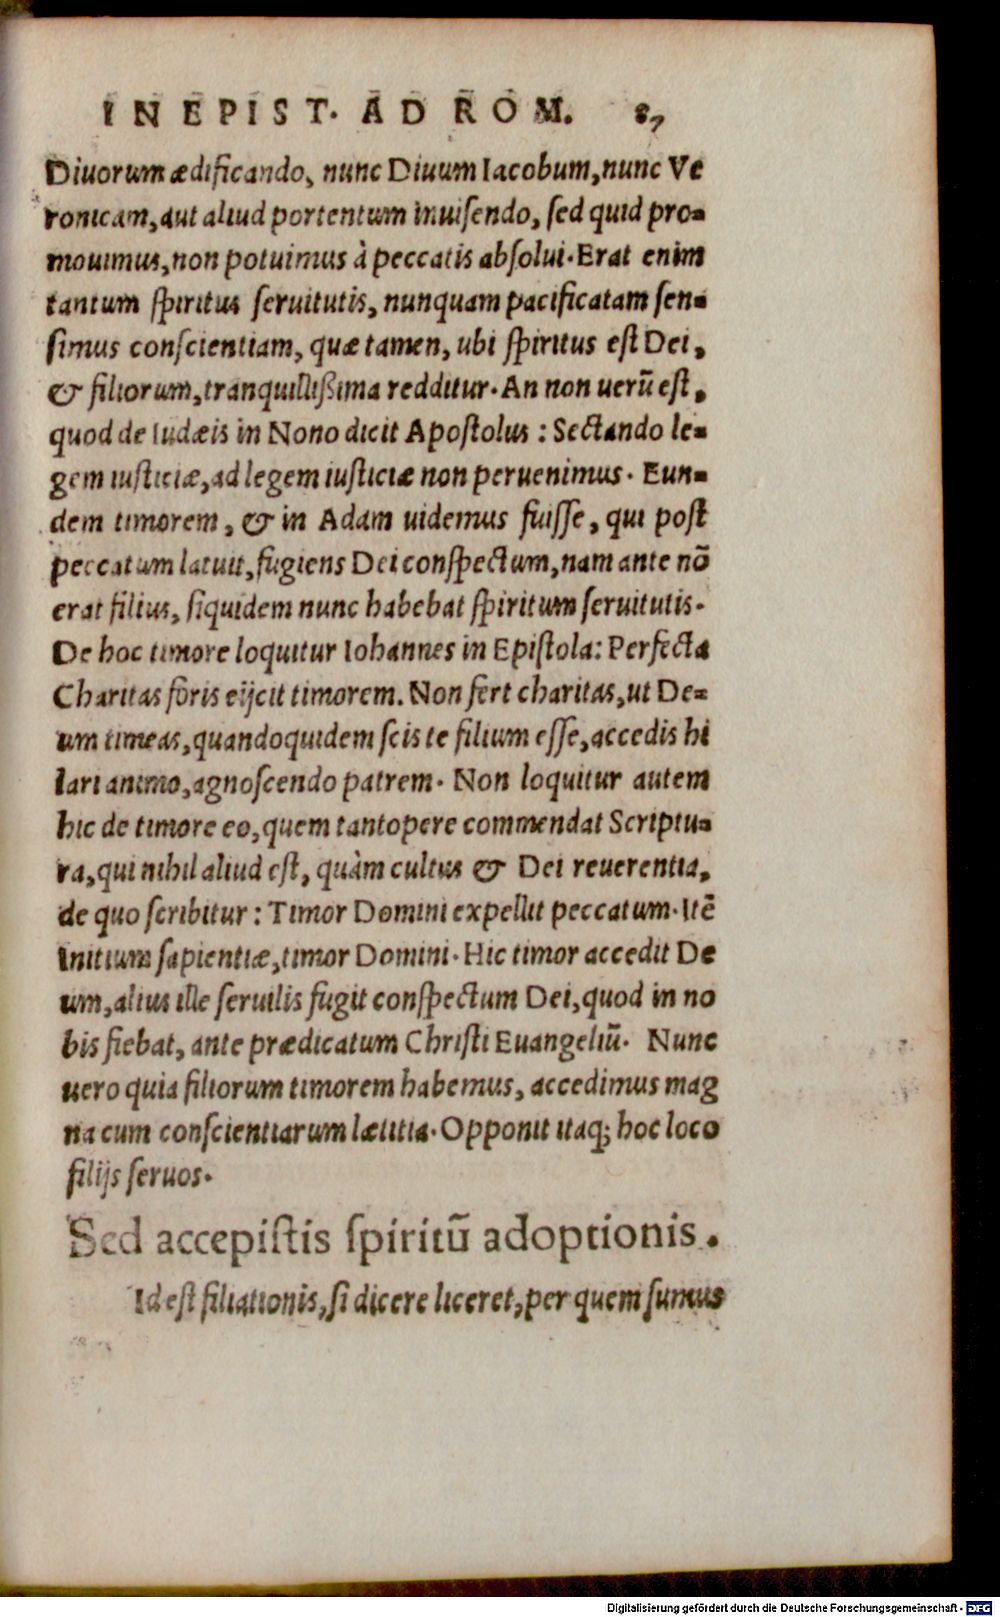 IN EPIST. AD ROM. 87
Diuorum ædificando, nunc Diuum Iacobum, nunc Ve
ronicam, aut aliud portentum inuisendo, sed quid pro-
mouimus, non potuimus à peccatis absolui. Erat enim
tantum spiritus seruitutis, nunquam pacificatam sen-
simus conscientiam, quæ tamen, ubi spiritus est Dei,
& filiorum, tranquillißima redditur. An non uerũ est,
quod de Iudæis in Nono dicit Apostolus : Sectando le-
gem iusticiæ, ad legem iusticiæ non peruenimus. Eun-
dem timorem, & in Adam uidemus fuisse, qui post
peccatum latuit, fugiens Dei conspectum, nam ante nõ
erat filius, siquidem nunc habebat spiritum seruitutis.
De hoc timore loquitur Iohannes in Epistola: Perfecta
Charitas foris eijcit timorem. Non fert charitas, ut De-
um timeas, quandoquidem scis te filium esse, accedis hi
lari animo, agnoscendo patrem. Non loquitur autem
hic de timore eo, quem tantopere commendat Scriptu-
ra, qui nihil aliud est, quàm cultus & Dei reuerentia,
de quo scribitur : Timor Domini expellit peccatum. Itẽ
Initium sapientiæ, timor Domini. Hic timor accedit De
um, alius ille seruilis fugit conspectum Dei, quod in no
bis fiebat, ante prædicatum Christi Euangeliũ. Nunc
uero quia filiorum timorem habemus, accedimus mag
na cum conscientiarum lætitia. Opponit itaq; hoc loco
filijs seruos.
Sed accepistis spiritũ adoptionis.
Id est filiationis, si dicere liceret, per quem sumus
Digitalisierung gefördert durch die Deutsche Forschungsgemeinschaft - DFG